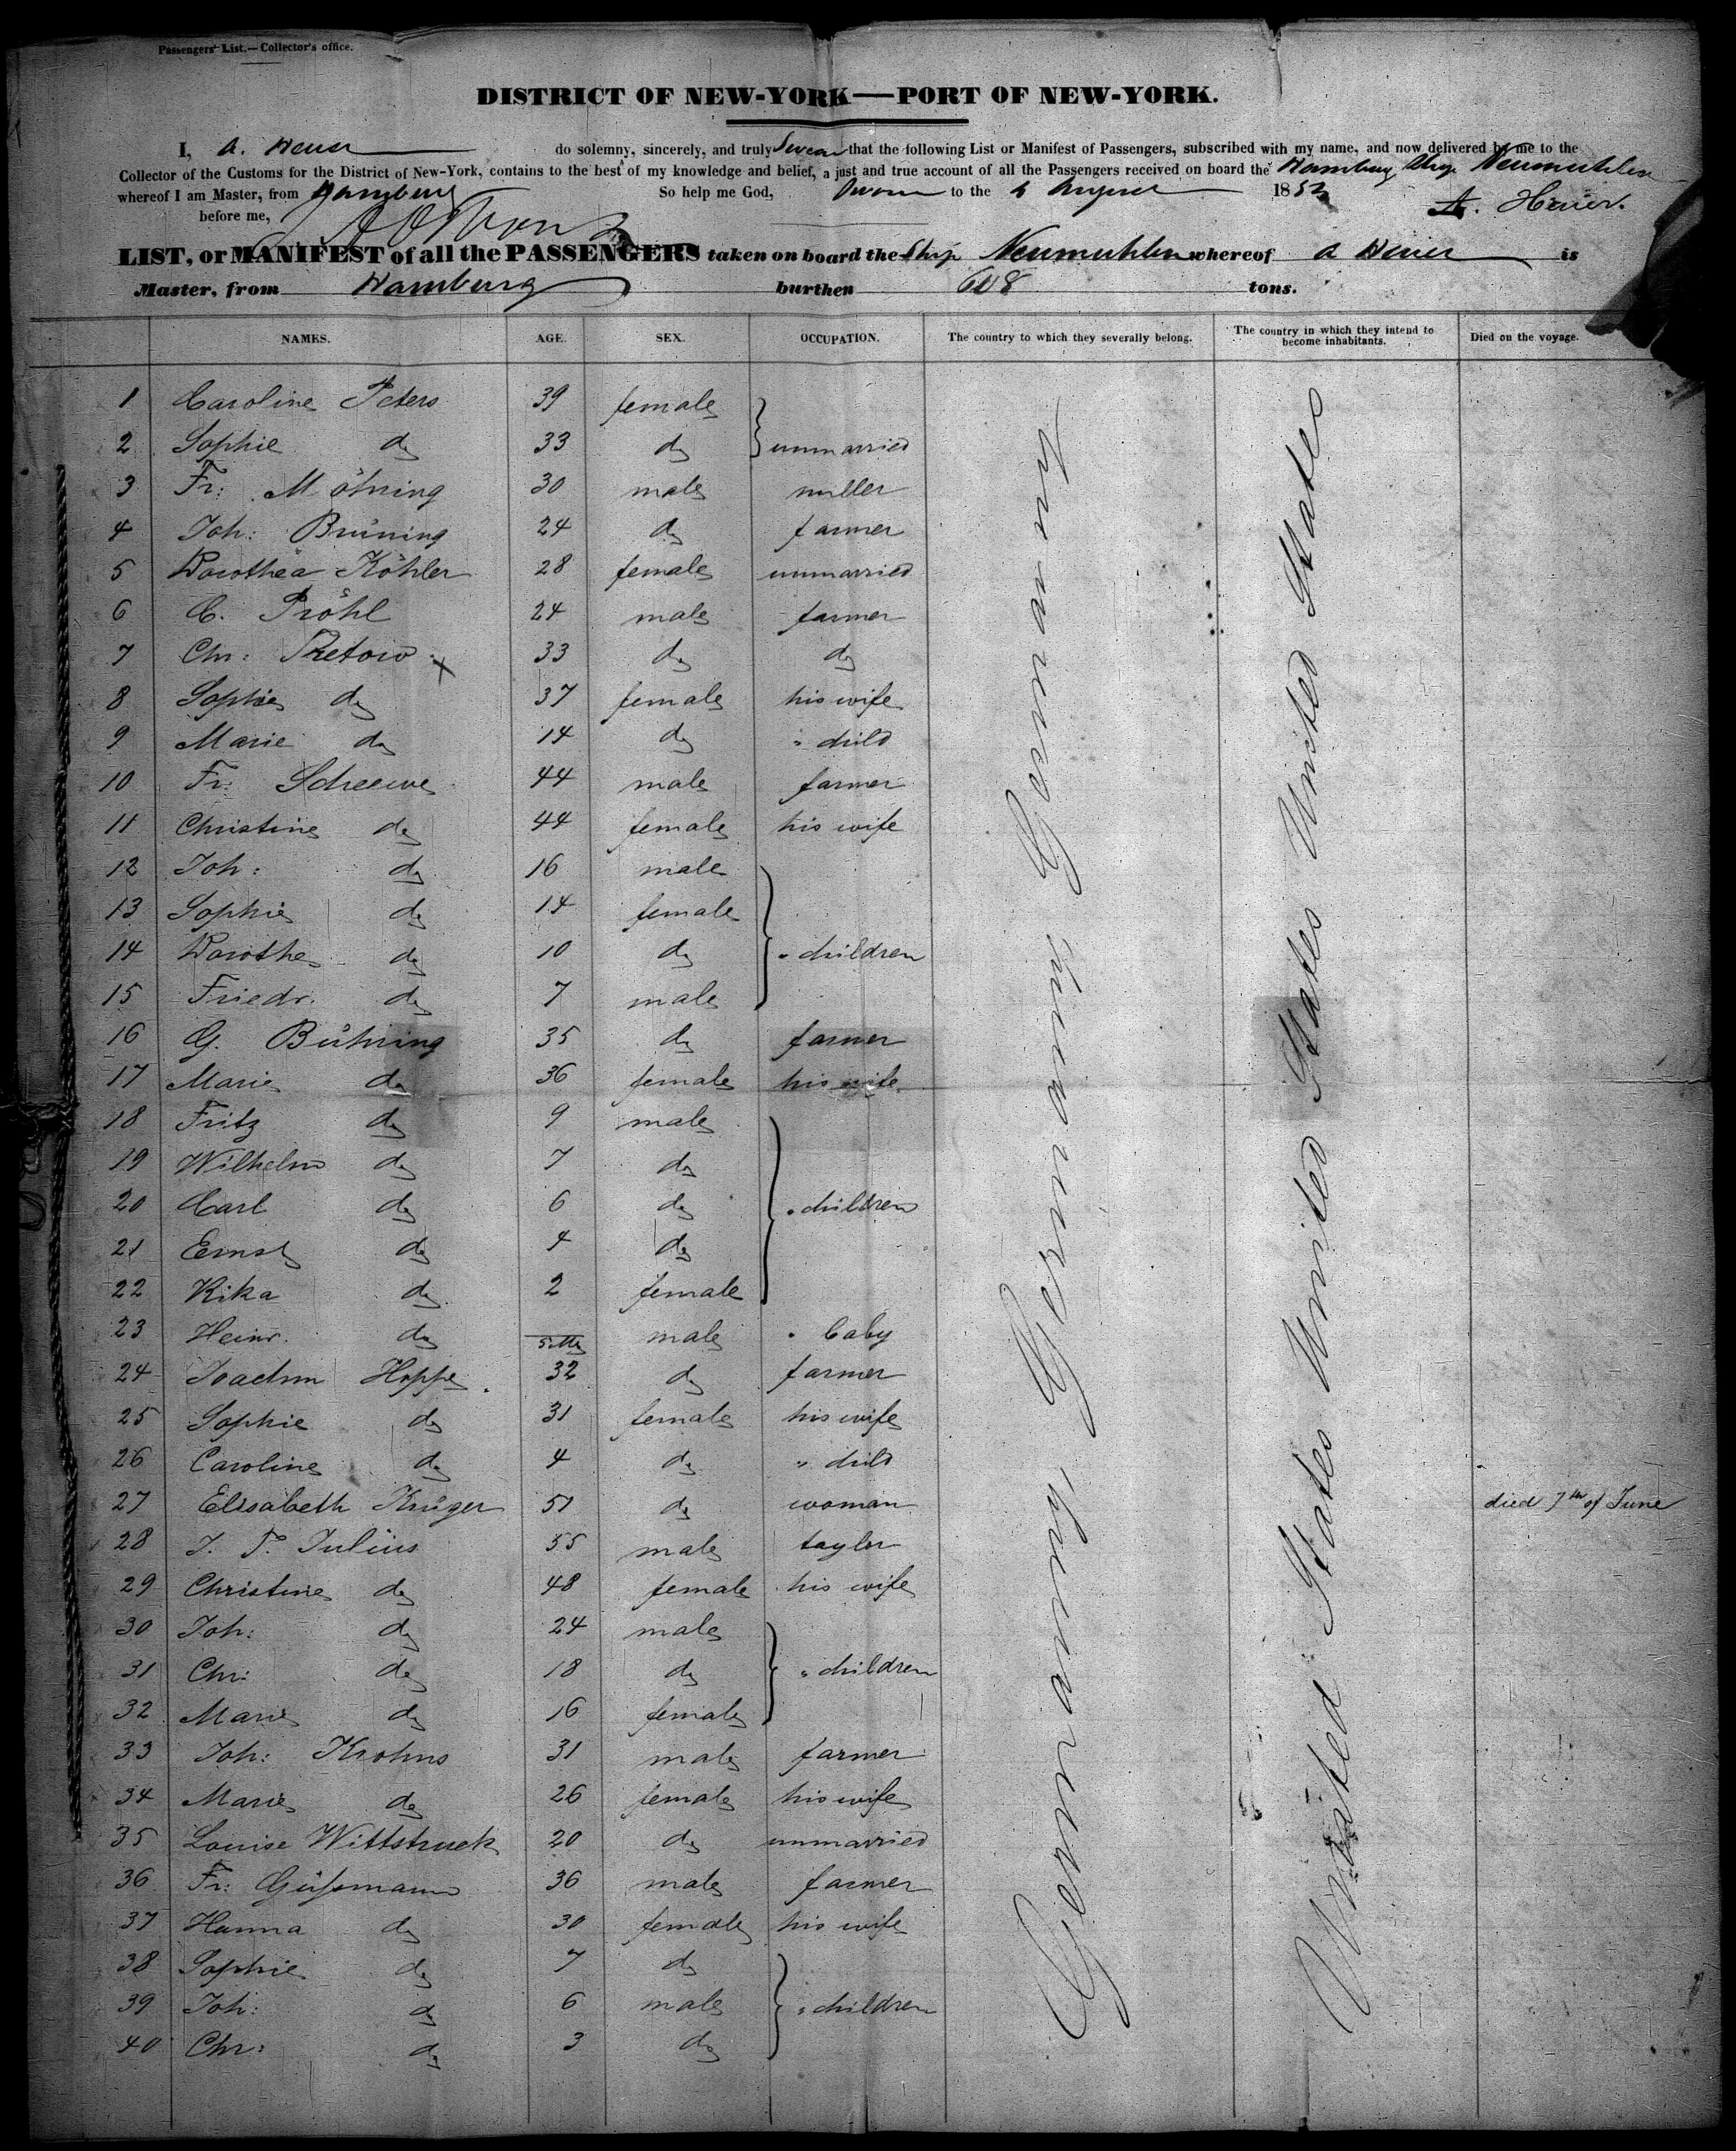 Passengers' List.—Collector's office.
DISTRICT OF NEW-YORK—PORT OF NEW-YORK.
I, A. Heuer do solemny, sincerely, and truly Swear that the following List or Manifest of Passengers, subscribed with my name, and now delivered by me to the
Collector of the Customs for the District of New-York, contains to the best of my knowledge and belief, a just and true account of all the Passengers received on board the Hamburg Ship Neumuhlen
whereof I am Master, from Hamburg So help me God, Sworn to the 4 August 1853
before me, A. Heuer.
LIST, or MANIFEST of all the PASSENGERS taken on board the Ship Neumuhlen whereof A Heuer is
Master, from Hamburg burthen 608 tons.
NAMES. AGE. SEX. OCCUPATION. The country to which they severally belong. The country in which they intend to become inhabitants. Died on the voyage.
1 Caroline Peters 39 female
2 Sophie do 33 do unmarried
3 Fr: Möhring 30 male miller
4 Joh: Brüning 24 do farmer
5 Dorothea Köhler 28 female unmarried
6 C. Pröhl 24 male farmer
7 Chr: Retow x 33 do do
8 Sophie do 37 female his wife
9 Marie do 14 do " child
10 Fr: Scheewe 44 male farmer
11 Christine do 44 female his wife
12 Joh: do 16 male
13 Sophie do 14 female
14 Dorothe do 10 do " children
15 Friedr. do 7 male
16 G. Bühring 35 do farmer
17 Marie do 36 female his wife
18 Fritz do 9 male
19 Wilhelm do 7 do
20 Carl do 6 do " children
21 Ernst do 4 do
22 Rika do 2 female
23 Heinr. do 5 Mts male " baby
24 Joachim Hoppe 32 do farmer
25 Sophie do 31 female his wife
26 Caroline do 4 do " child
27 Elisabeth Krüger 51 do woman died 7th of June
28 J. F. Julius 55 male taylor
29 Christine do 48 female his wife
30 Joh: do 24 male
31 Chr: do 18 do " children
32 Marie do 16 female
33 Joh: Krohns 31 male farmer
34 Marie do 26 female his wife
35 Louise Wittstruck 20 do unmarried
36 Fr: Güßmann 36 male farmer
37 Hanna do 30 female his wife
38 Sophie do 7 do
39 Joh: do 6 male " children
40 Chr: do 3 do
Germany, Germany Germany
United States United States United States